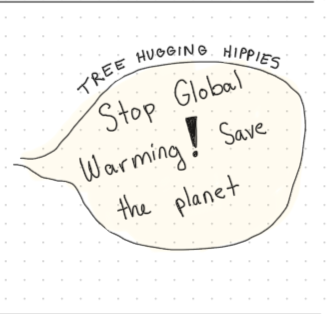 TREE HUGGING HIPPIES
Stop Global
Warming! Save
the planet